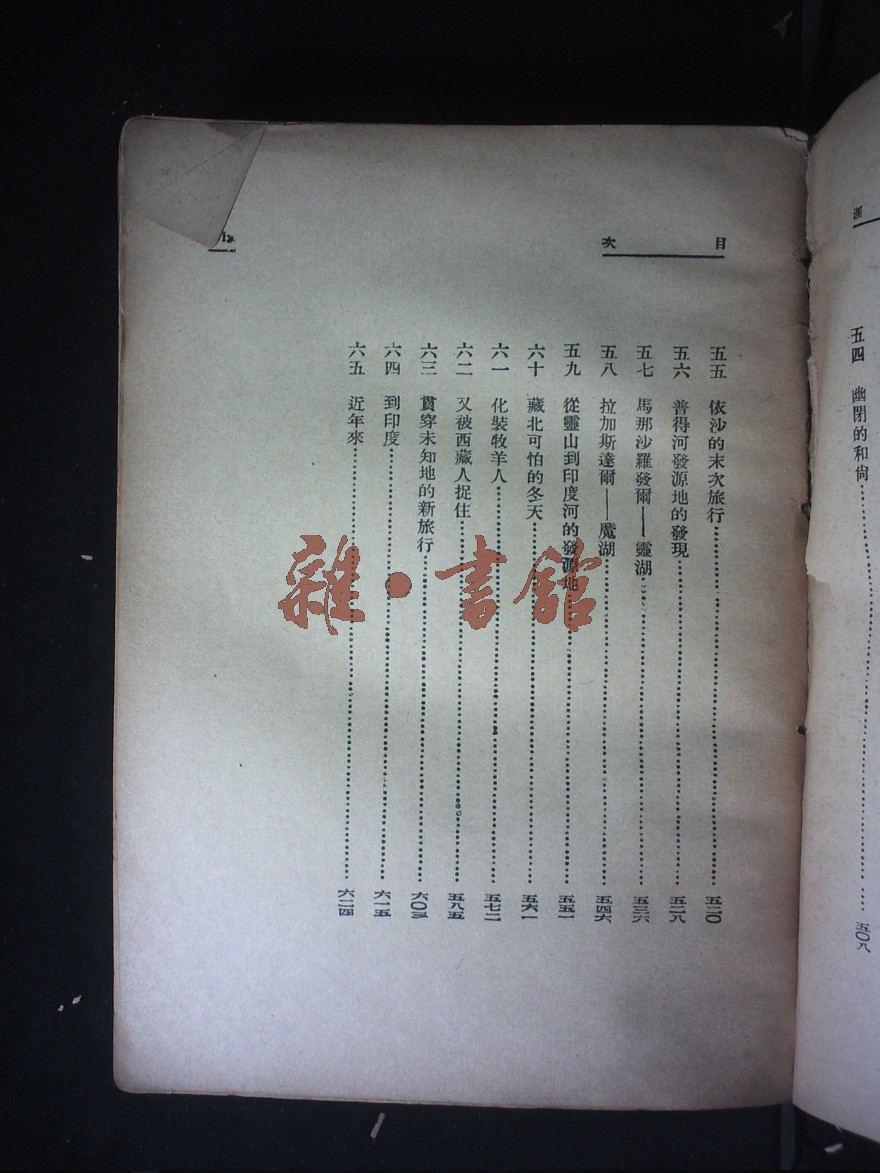 五四 幽閉的和尙 五〇八
目次
五五 依沙的末次旅行 五二〇
五六 普得河發源地的發現 五二八
五七 馬那沙羅發爾——靈湖 五三六
五八 拉加斯達爾——魔湖 五四六
五九 從靈山到印度河的發源地 五五一
六十 藏北可怕的冬天 五六一
六一 化裝牧羊人 五七二
六二 又被西藏人捉住 五八五
六三 貫穿未知地的新旅行 六〇三
六四 到印度 六一五
六五 近年來 六二四
雜·書館